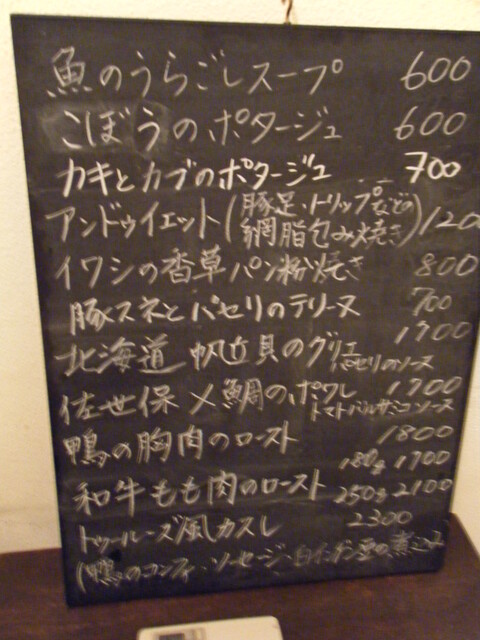 魚のうらごしスープ 600
ごぼうのポタージュ 600
カキとカブのポタージュ 700
アンドゥイエット(豚足、トリップなどの網脂包み焼き) 120
イワシの香草パン粉焼き 800
豚スネとパセリのテリーヌ 700
北海道 帆立貝のグリエ パセリのソース 1700
佐世保 〆鯛のポワレ トマトバルサミコソース 1700
鴨の胸肉のロースト 1800
和牛もも肉のロースト 180g 1700 250g 2100
トゥールーズ風カスレ 2300
(鴨のコンフィ、ソーセージ、白インゲン豆の煮込み